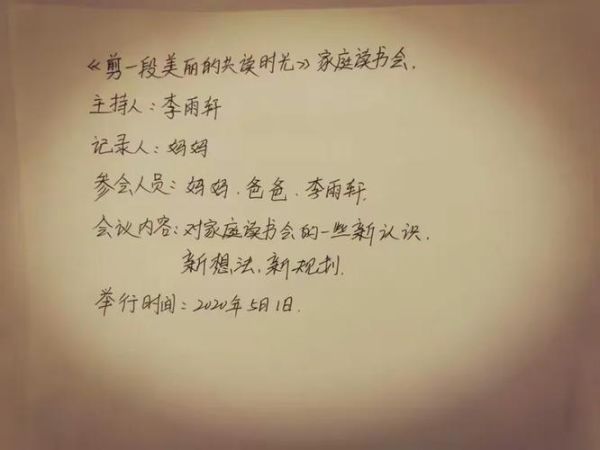 《剪一段美丽的共读时光》家庭读书会.
主持人：李雨轩
记录人：妈妈
参会人员：妈妈.爸爸.李雨轩.
会议内容：对家庭读书会的一些新认识.
新想法、新规划.
举行时间：2020年5月1日.